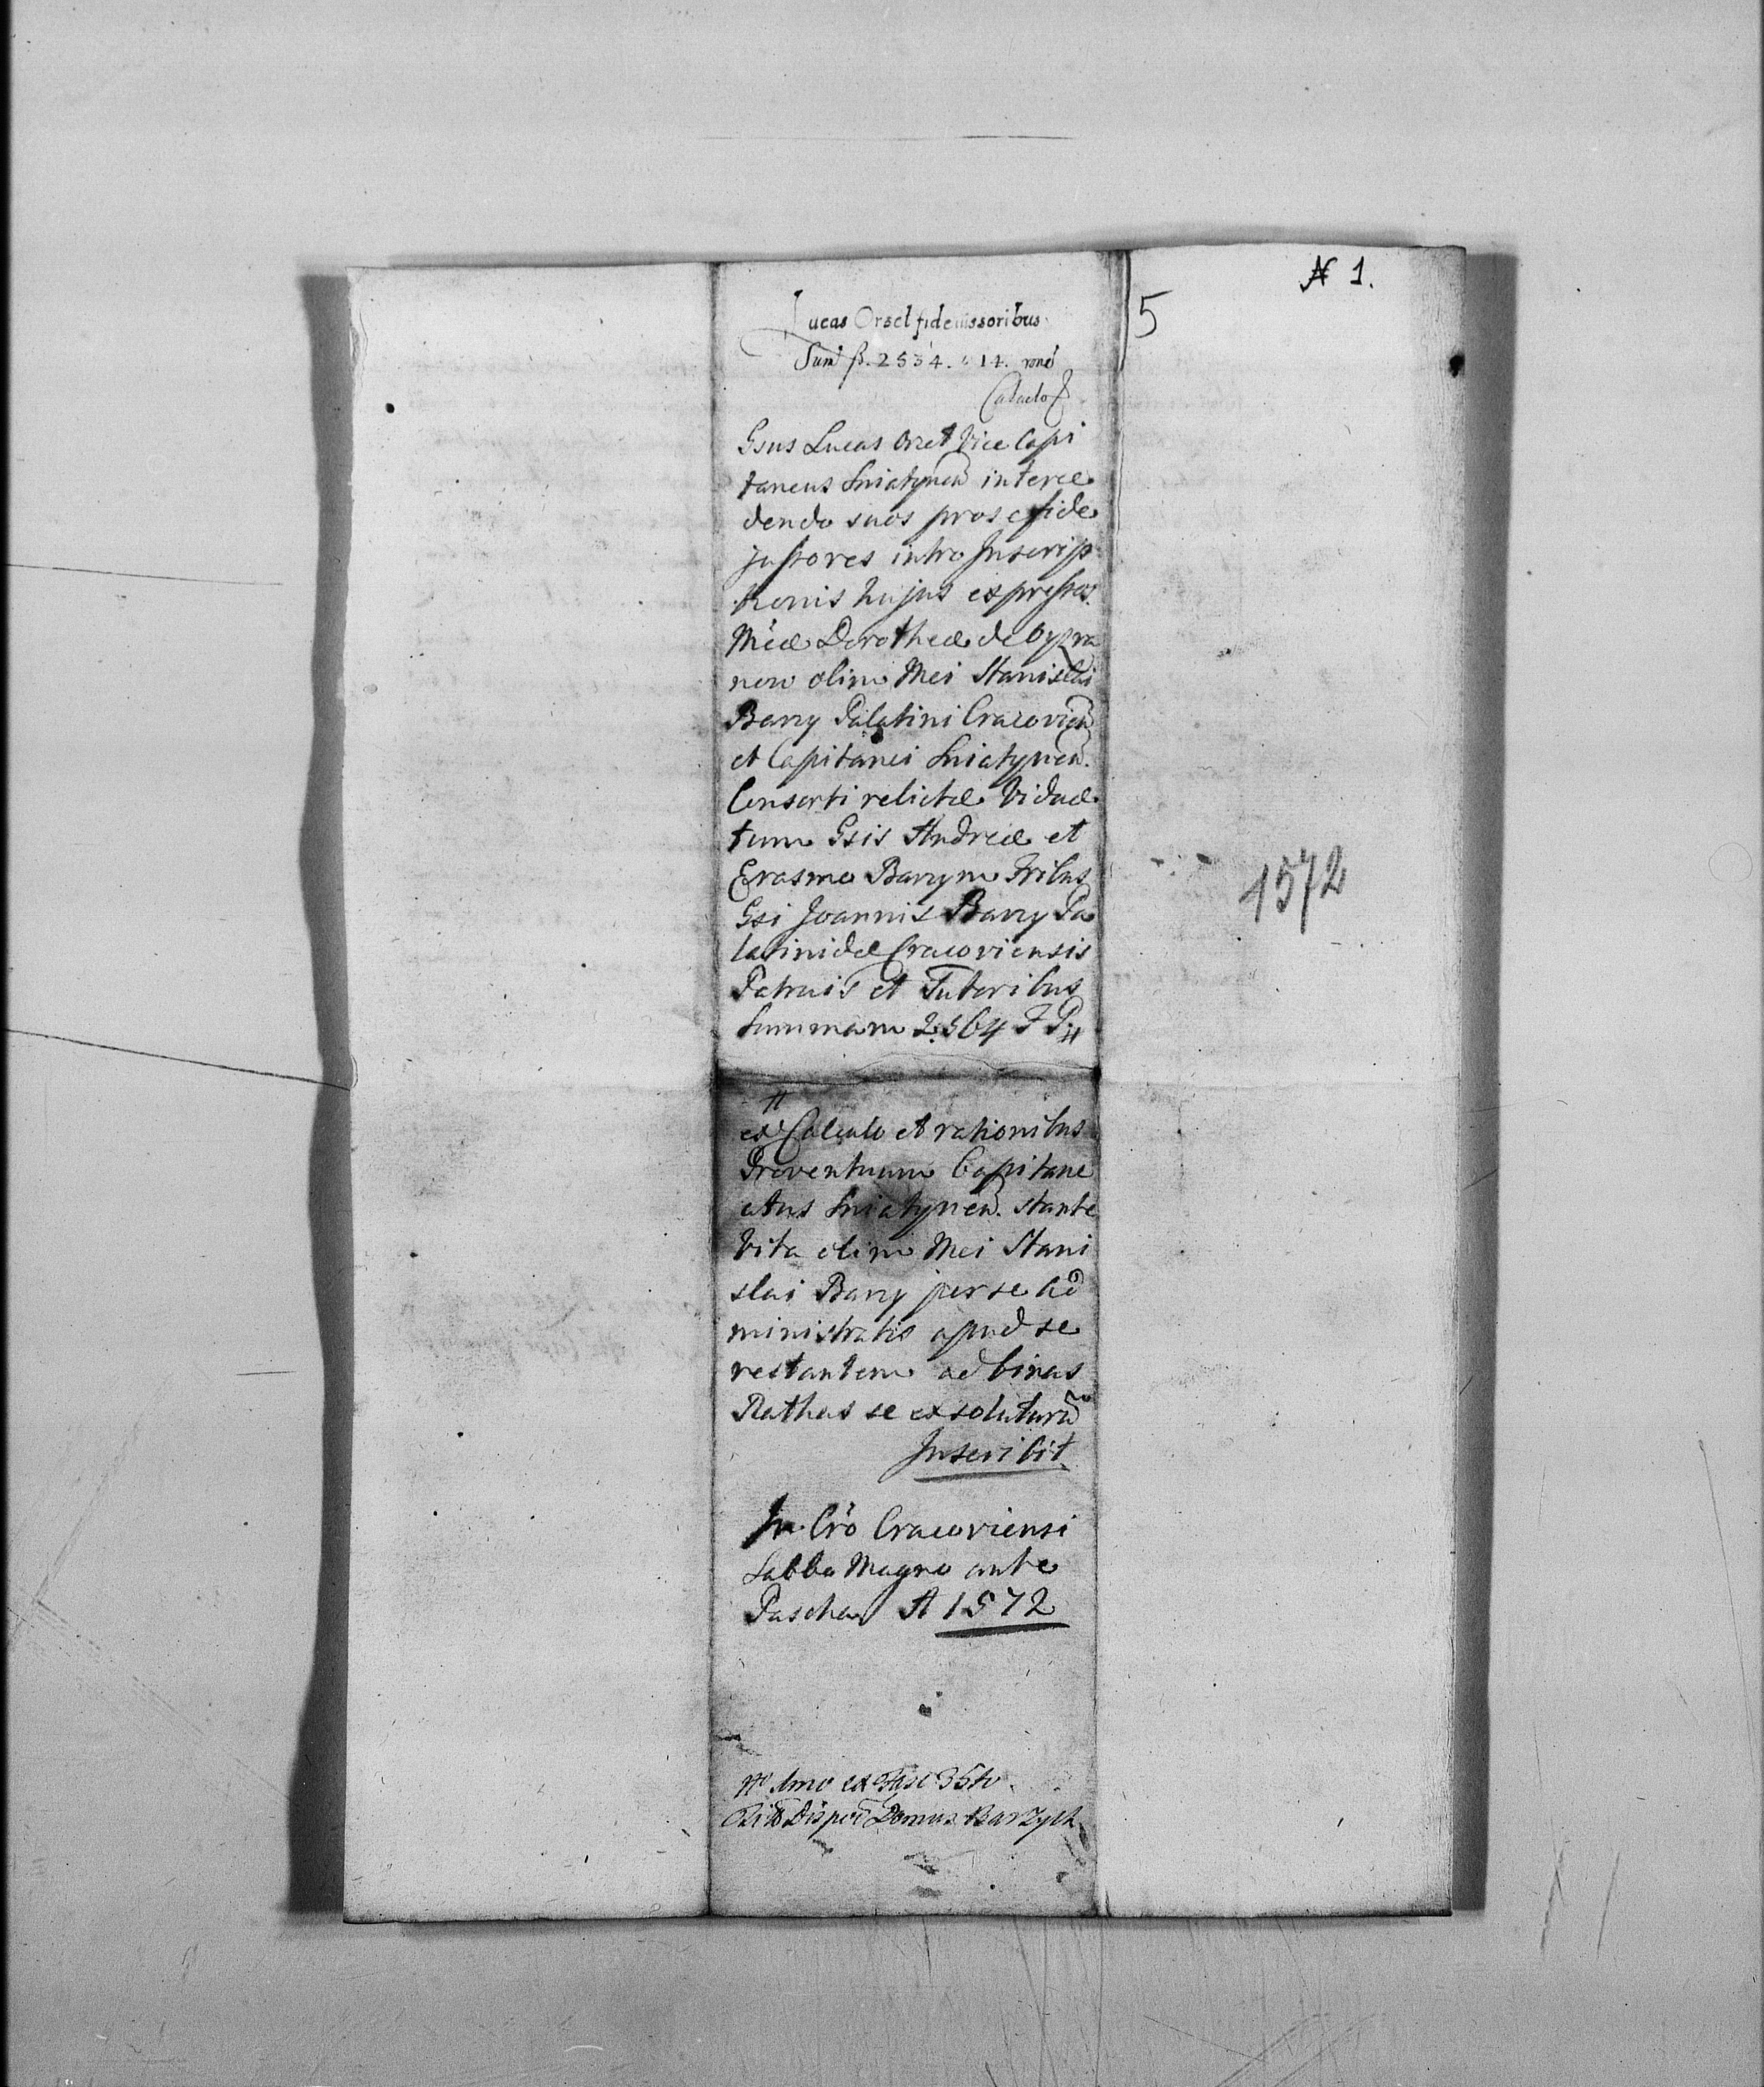 N 1.
5
Lucas Orsel fideiussoribus
Sum̃ fl. 2534. 14. rone
Gsus Lucas Orzet Vice Capi
taneus Sniatynen̄ interce
dendo suos pro se fide
jussores intro Inscrip
tionis hujus expressos
Mcae Dorotheae de
now olim Mci Stanislai
Barzy Palatini Cracovien̄
et Capitanei Sniatynen̄.
Consorti relictae Viduae
tum Gsis Andreae et
Erasmo Barzym Fribus
Gsi Joannis Barzy Pa
latinidae Cracoviensis
Patruis et Tutoribus
Summam 2564 F P #
#
ex Calculo et rationibus
Proventuum Capitane
atus Sniatynen̄. stante
Vita olim Mci Stani
slai Barzy per se ad
ministratis apud se
restantem ad binas
Rathas se exsoluturū
Inscribit
In Cro Cracoviensi
Sabbo Magno ante
Pascha A 1572
1572
No 1mo ex Fasc 35to
Domus Barzych